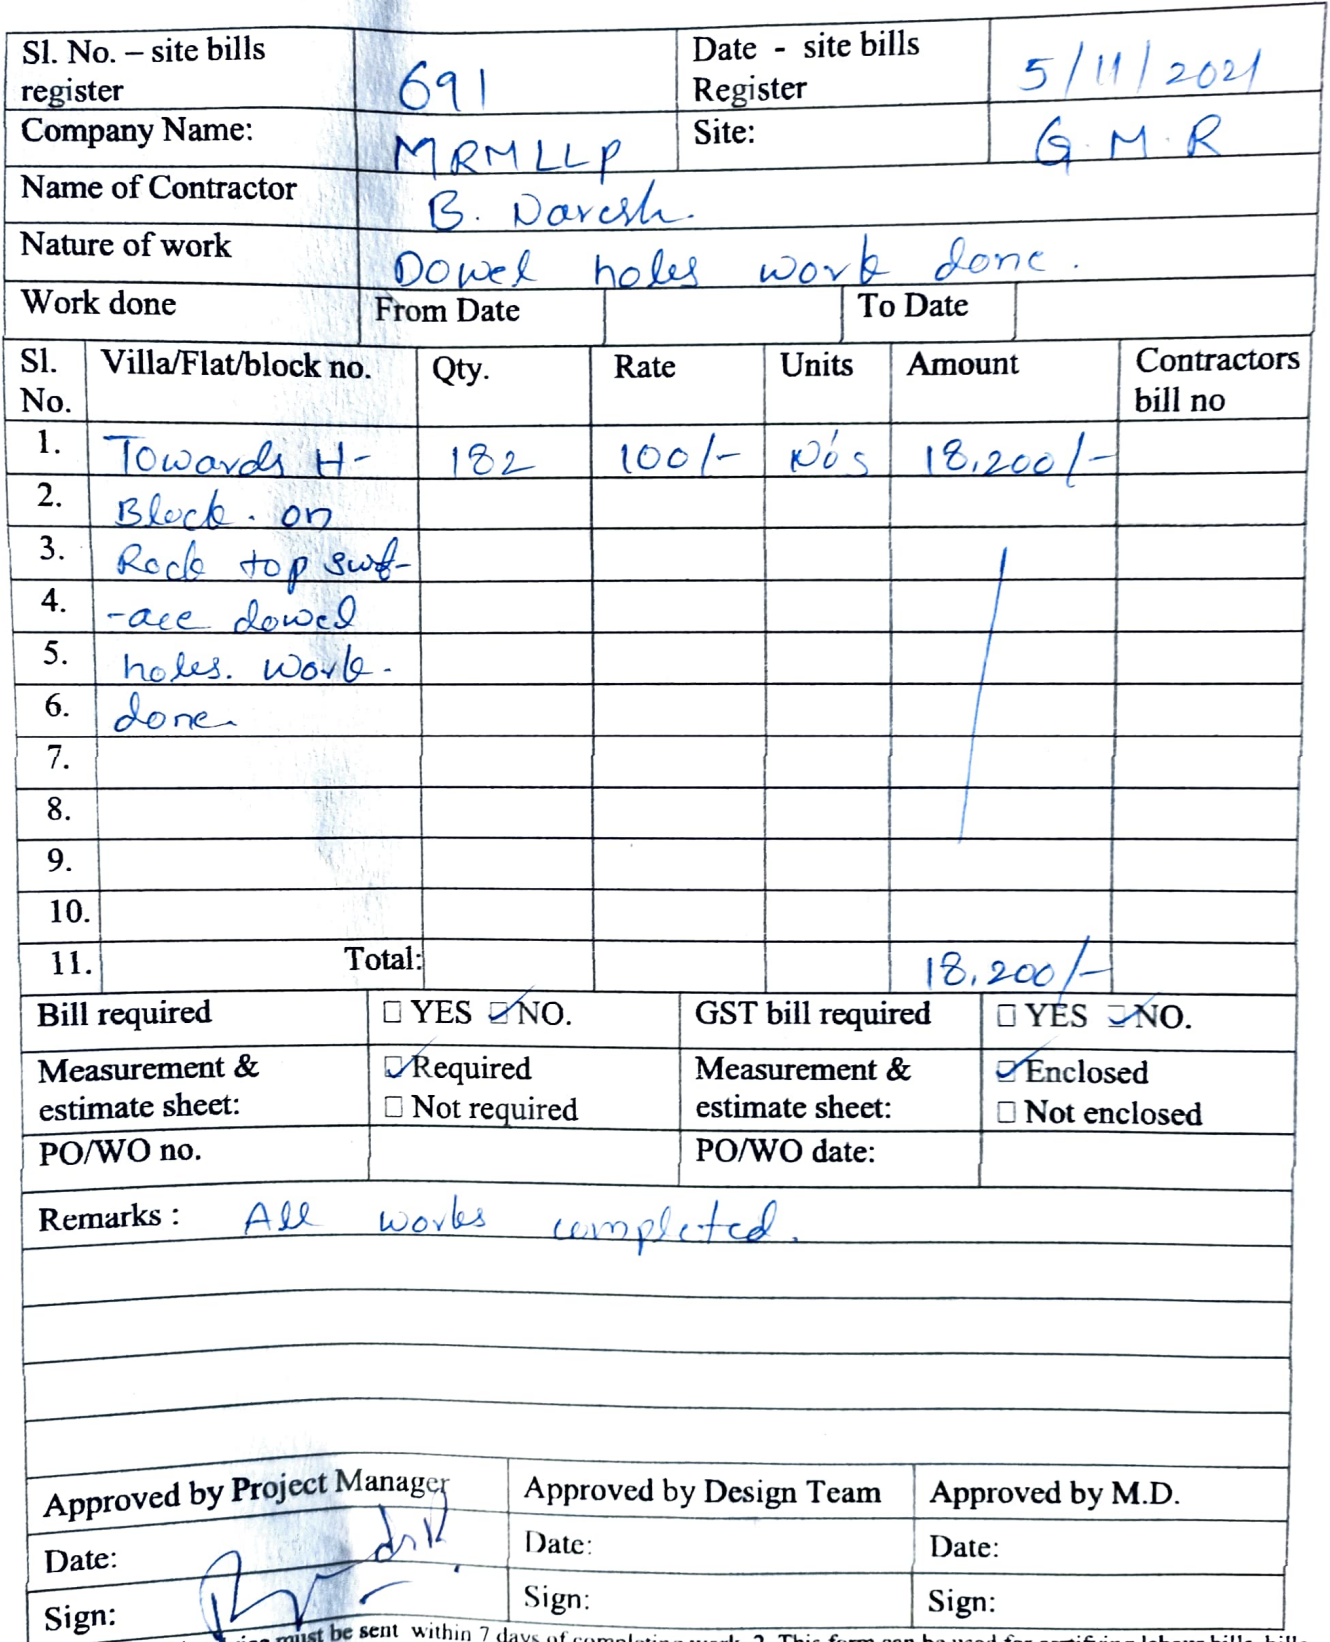 Sl. No. – site bills register 691 Date - site bills Register 5/11/2021
Company Name: MRMLLP Site: G.M.R
Name of Contractor B. Naresh.
Nature of work Dowel holes work done.
Work done From Date To Date
Sl. No. Villa/Flat/block no. Qty. Rate Units Amount Contractors bill no
1. Towards H- 182 100/- No's 18,200/-
2. Block. on
3. Rock top surf-
4. -ace dowel
5. holes. work.
6. done.
7.
8.
9.
10.
11. Total: 18,200/-
Bill required ☐ YES ☑ NO. GST bill required ☐ YES ☑ NO.
Measurement & estimate sheet: ☑ Required ☐ Not required Measurement & estimate sheet: ☑ Enclosed ☐ Not enclosed
PO/WO no. PO/WO date:
Remarks : All works completed.
Approved by Project Manager Approved by Design Team Approved by M.D.
Date: Date: Date:
Sign: Sign: Sign:
must be sent within 7 days of completing work. 2. This form can be used for certifying labour bills, bills